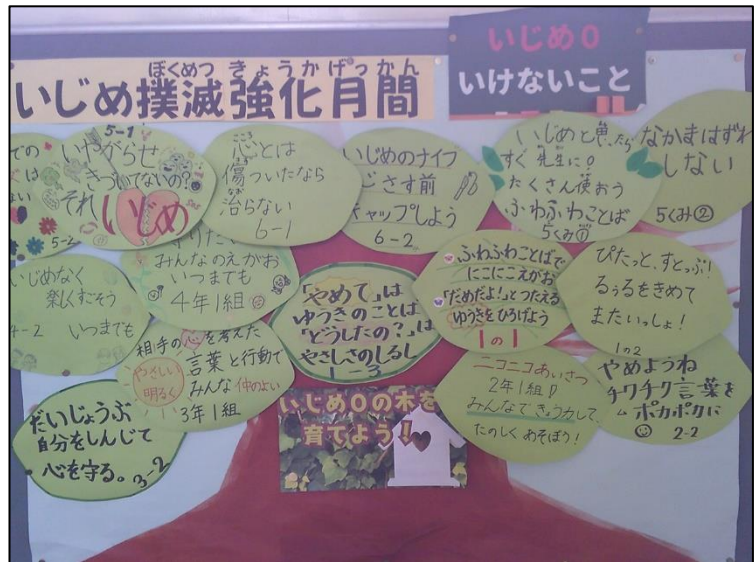 ぼくめつ きょうかげっかん
いじめ撲滅強化月間
いじめ0
いけないこと
5-2
5-1
いやがらせ
きづいてないの?
それ いじめ
こころ
心とは
傷ついたなら
治らない
6-1
いじめのナイフ
さす前
キャップしよう
6-2
いじめと思ったら
すぐ先生に
たくさん使おう
ふわふわことば
5くみ①
なかまはずれ
しない
5くみ②
いじめなく
楽しくすごそう
いつまでも
4-2
みんなのえがお
いつまでも
4年1組
「やめて」は
ゆうきのことば
「どうしたの?」は
やさしさのしるし
1-3
ふわふわことばで
にこにこえがお
「だめだよ!」とつたえる
ゆうきをひろげよう
1の1
ぴたっと、すとっぷ!
るぅるをきめて
またいっしょ!
1の2
相手の心を考えた
やさしい 言葉と行動で
明るく みんな仲のよい
3年1組
だいじょうぶ
自分をしんじて
心を守る。
3-2
いじめ0の木を
育てよう!
ニコニコあいさつ
2年1組
みんなできょう力して、
たのしくあそぼう!
やめようね
チクチク言葉を
ポカポカに
2-2